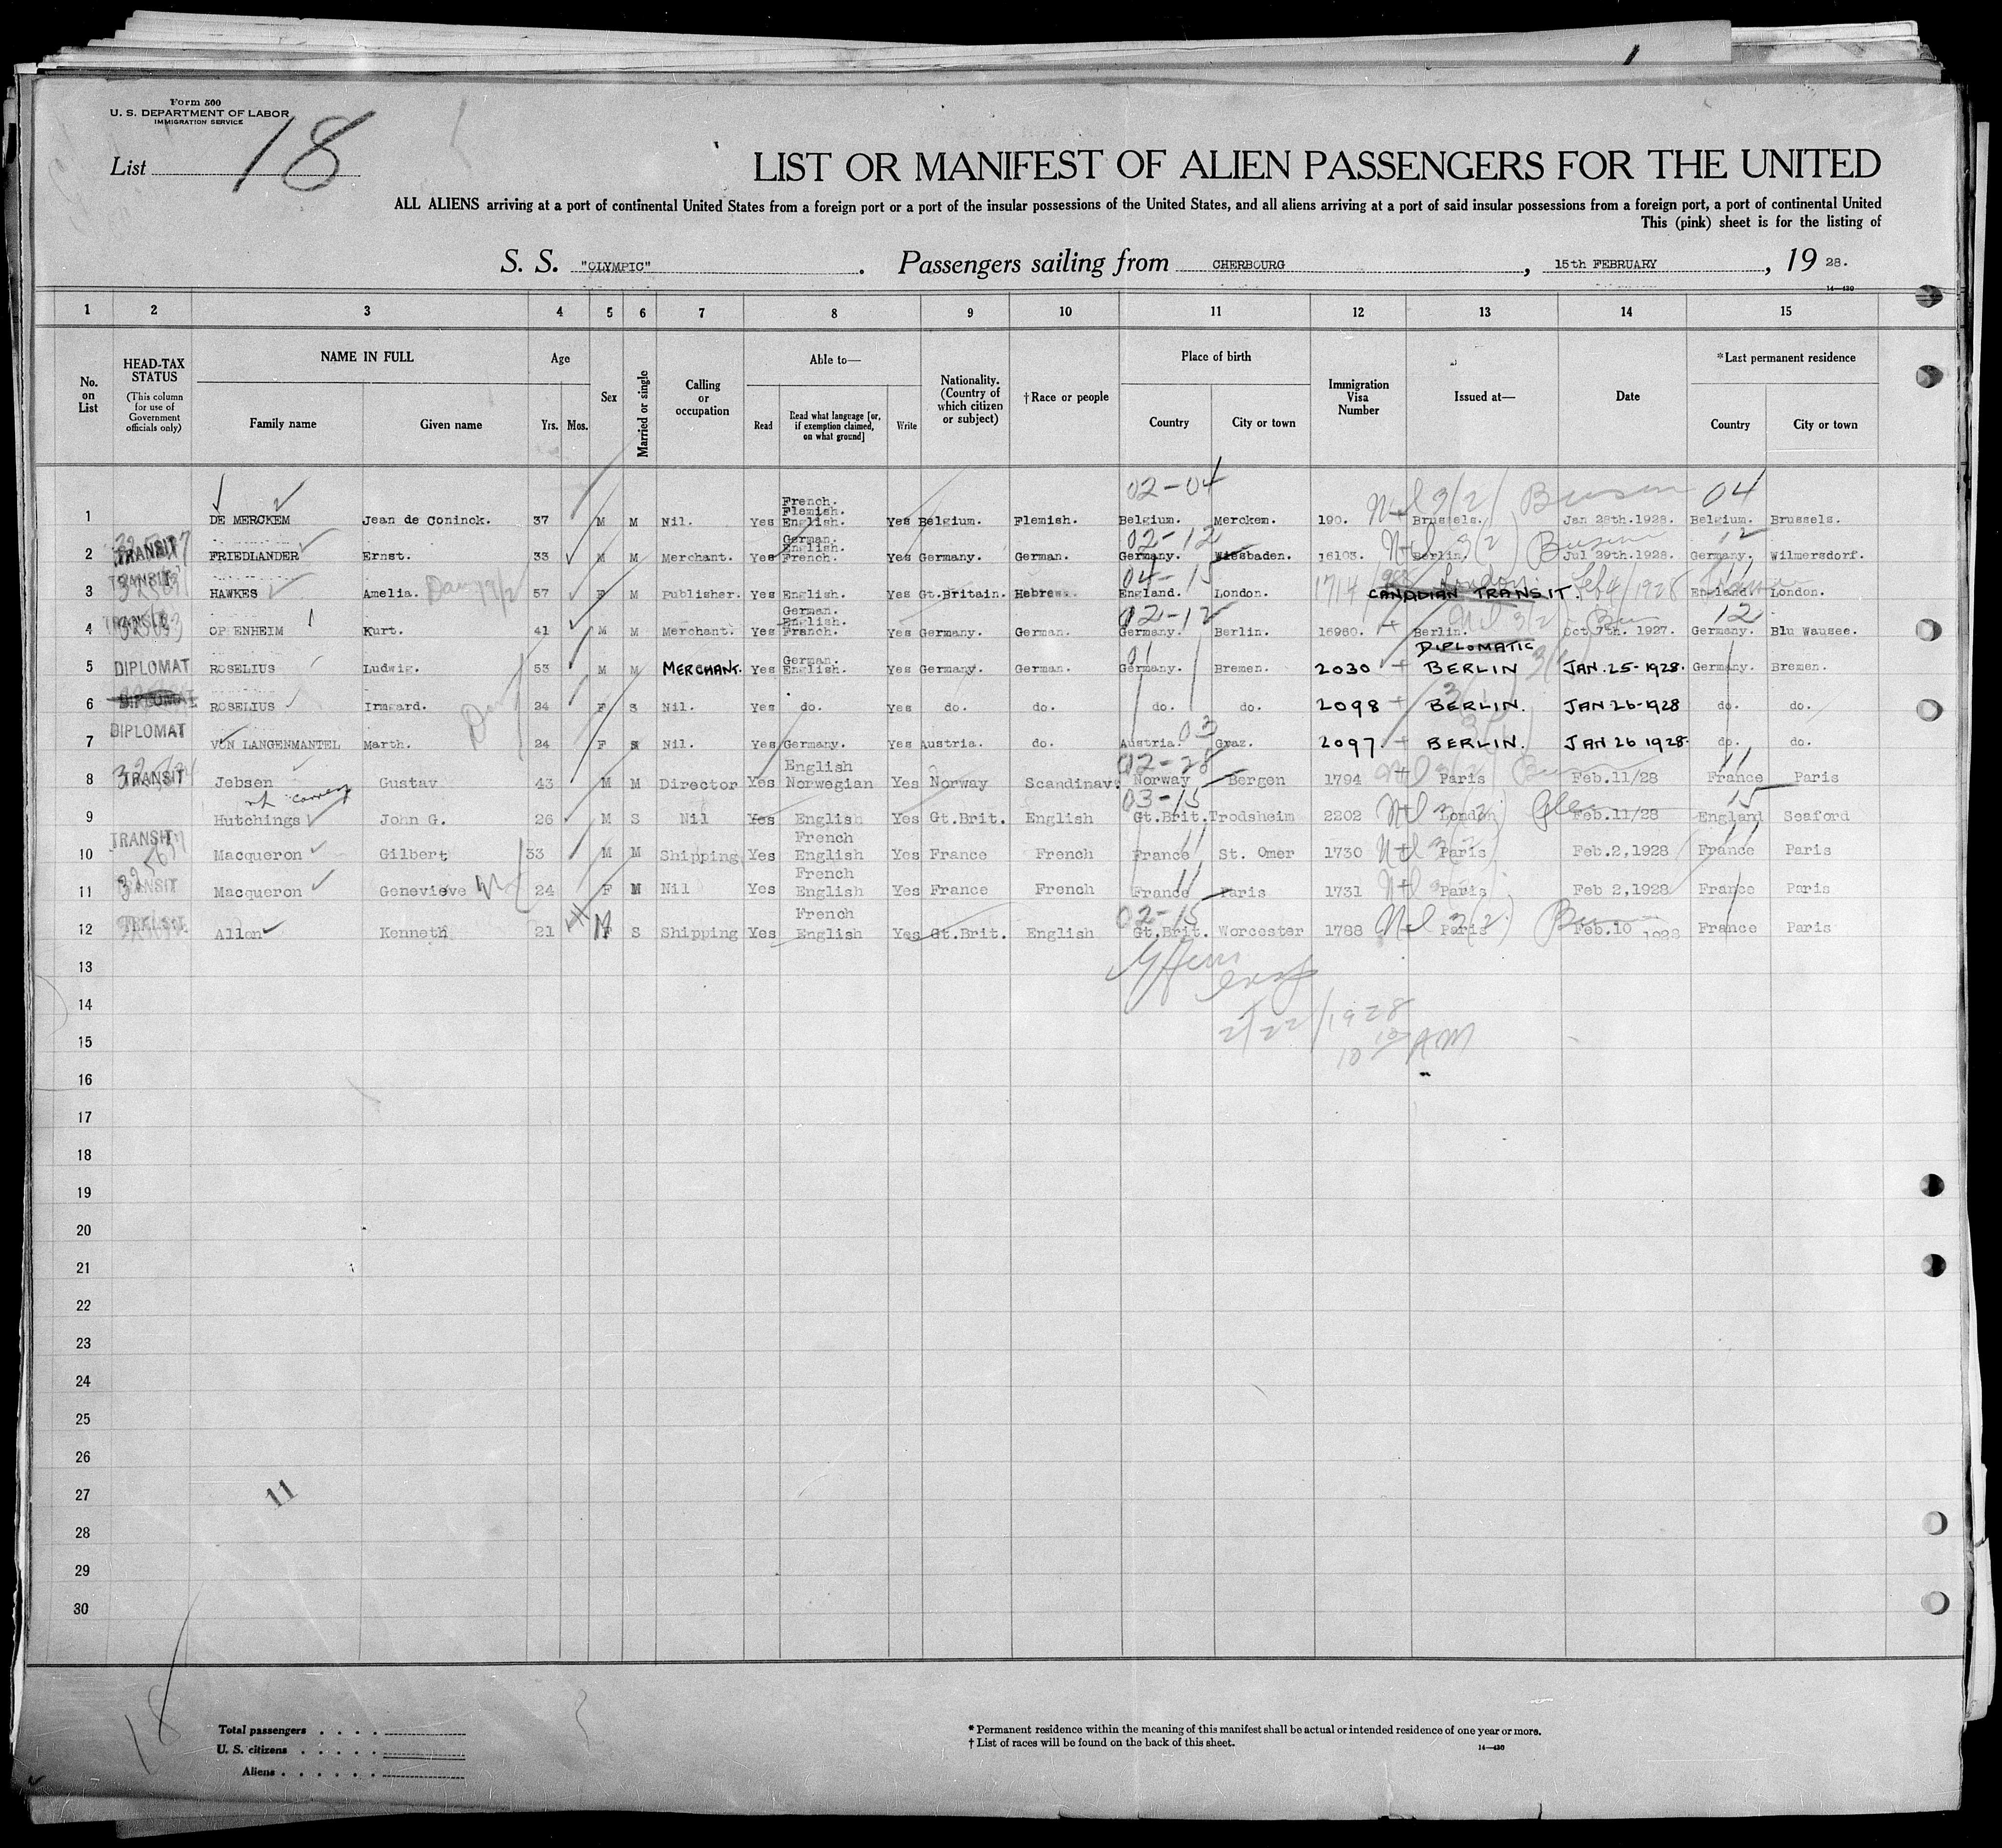 Form 500
U. S. DEPARTMENT OF LABOR
IMMIGRATION SERVICE
List 18
LIST OR MANIFEST OF ALIEN PASSENGERS FOR THE UNITED
ALL ALIENS arriving at a port of continental United States from a foreign port or a port of the insular possessions of the United States, and all aliens arriving at a port of said insular possessions from a foreign port, a port of continental United
This (pink) sheet is for the listing of
S. S. "OLYMPIC" . Passengers sailing from CHERBOURG , 15th FEBRUARY , 19 28.
14—430
1 2 3 4 5 6 7 8 9 10 11 12 13 14 15
No. on List
HEAD-TAX STATUS
(This column for use of Government officials only)
NAME IN FULL
Family name Given name
Age
Yrs. Mos.
Sex
Married or single
Calling or occupation
Able to—
Read Read what language [or, if exemption claimed, on what ground] Write
Nationality. (Country of which citizen or subject)
†Race or people
Place of birth
Country City or town
Immigration Visa Number
Issued at—
Date
*Last permanent residence
Country City or town
02-04 04
1 DE MERCKEM Jean de Coninck. 37 M M Nil. Yes French. Flemish. English. Yes Belgium. Flemish. Belgium. Merckem. 190. Brussels. Jan 28th.1928. Belgium. Brussels.
02-12 12
2 TRANSIT FRIEDLANDER Ernst. 33 M M Merchant. Yes German. English. French. Yes Germany. German. Germany. Wiesbaden. 16103. Berlin. Jul 29th.1928. Germany. Wilmersdorf.
04-15 11
3 TRANSIT HAWKES Amelia. 57 F M Publisher. Yes English. Yes Gt.Britain. Hebrew. England. London. 1714 London CANADIAN TRANSIT. Feb 4/1928 England. London.
02-12 12
4 TRANSIT OPPENHEIM Kurt. 41 M M Merchant. Yes German. English. French. Yes Germany. German. Germany. Berlin. 16980. Berlin. Oct 7th. 1927. Germany. Blu Wausee.
DIPLOMATIC
5 DIPLOMAT ROSELIUS Ludwig. 53 M M MERCHANT. Yes German. English. Yes Germany. German. Germany. Bremen. 2030 BERLIN JAN.25-1928. Germany. Bremen.
6 DIPLOMAT ROSELIUS Irmgard. 24 F S Nil. Yes do. Yes do. do. do. do. 2098 BERLIN. JAN 26-1928 do. do.
03
7 DIPLOMAT VON LANGENMANTEL Marth. 24 F S Nil. Yes Germany. Yes Austria. do. Austria. Graz. 2097. BERLIN. JAN 26 1928. do. do.
02-28 11
8 TRANSIT Jebsen Gustav 43 M M Director Yes English Norwegian Yes Norway Scandinav. Norway Bergen 1794 Paris Feb.11/28 France Paris
03-15 15
9 Hutchings John G. 26 M S Nil Yes English Yes Gt.Brit. English Gt.Brit. Trodsheim 2202 London Feb.11/28 England Seaford
10 TRANSIT Macqueron Gilbert 33 M M Shipping Yes French English Yes France French France St. Omer 1730 Paris Feb.2,1928 France Paris
11 TRANSIT Macqueron Genevieve 24 F M Nil Yes French English Yes France French France Paris 1731 Paris Feb 2,1928 France Paris
02-15
12 Allon Kenneth 21 M S Shipping Yes French English Yes Gt.Brit. English Gt.Brit. Worcester 1788 Paris Feb.10 1928 France Paris
13
14
2/22/1928
15
10 AM
16
17
18
19
20
21
22
23
24
25
26
27
11
28
29
30
18
Total passengers
U. S. citizens
Aliens
* Permanent residence within the meaning of this manifest shall be actual or intended residence of one year or more.
† List of races will be found on the back of this sheet.
14—430